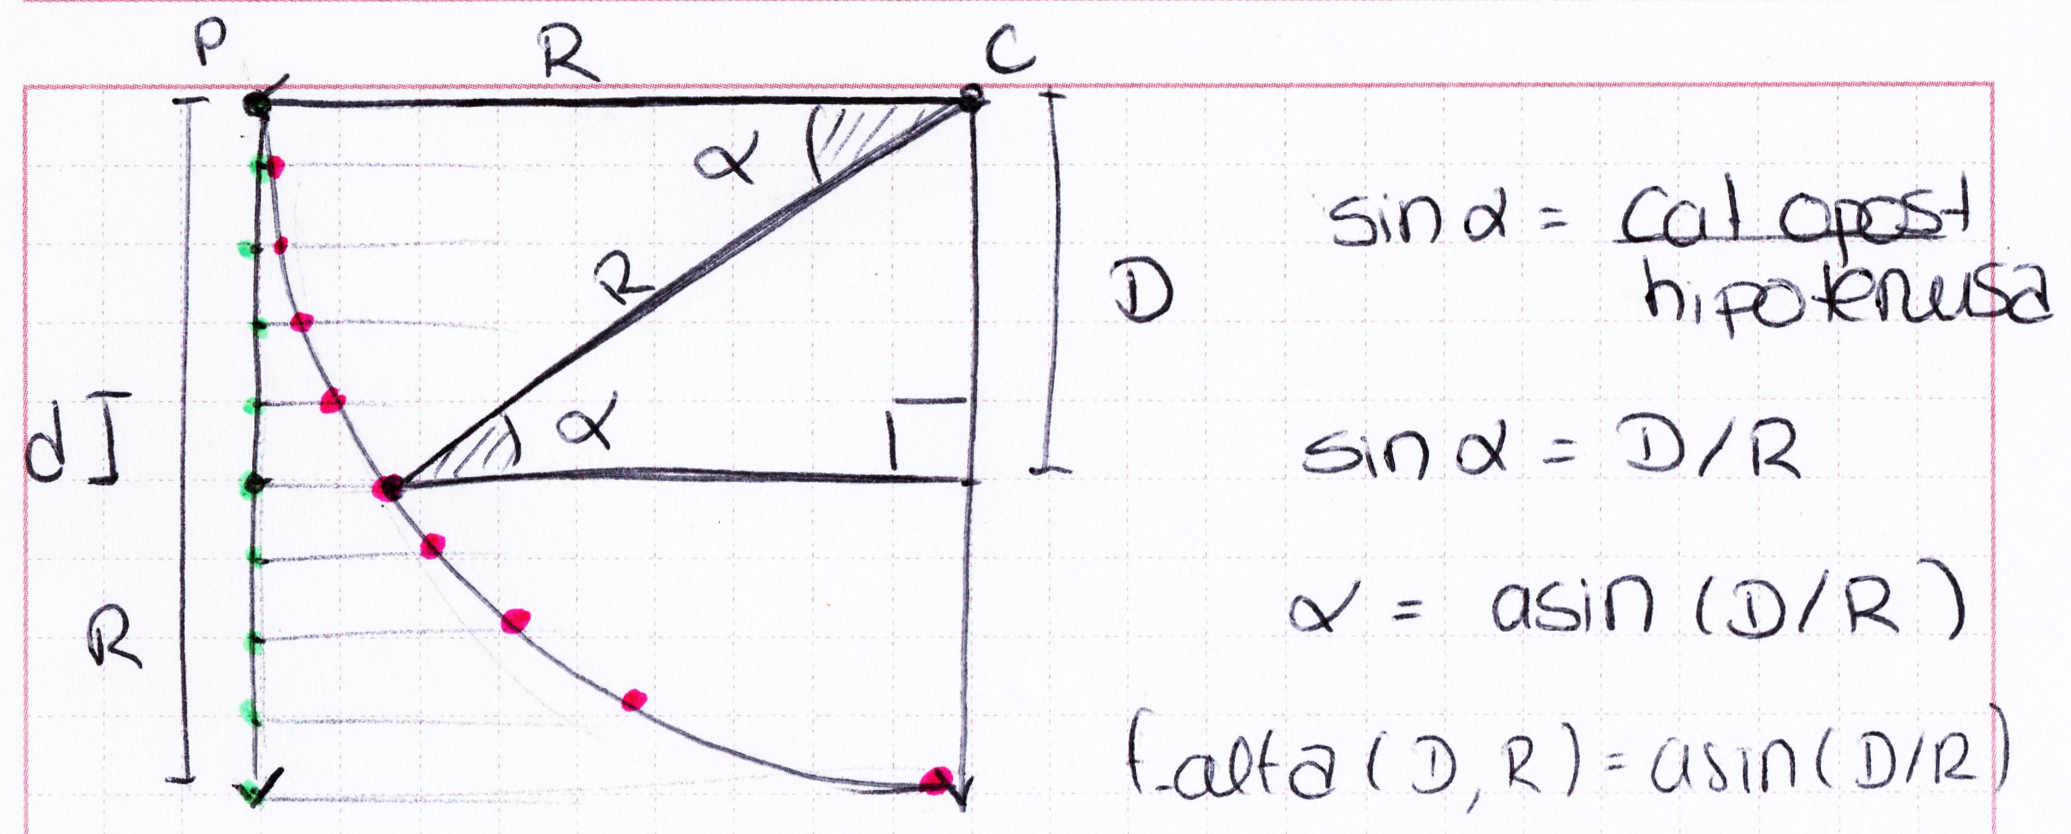 P R C
α
R
D
dJ
α
R
sin α = cat opost
hipotenusa
sin α = D/R
α = asin (D/R)
f_alfa(D,R)=asin(D/R)